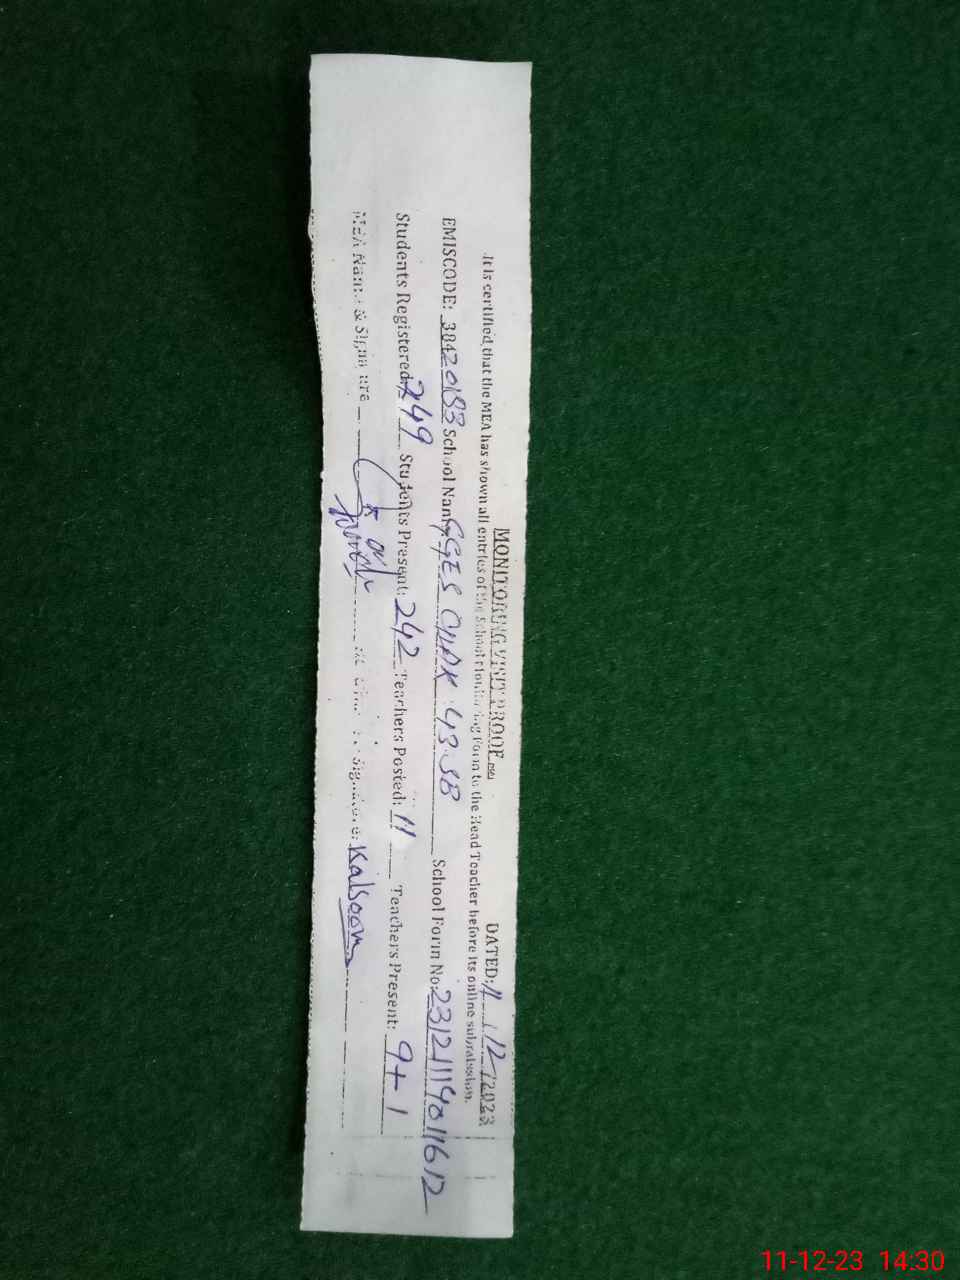 MONITORING VISIT PROOF DATED: 11/12/2023
It is certified that the MEA has shown all entries of the School Monitoring Form to the Head Teacher before its online submission.
EMISCODE: 38420183 School Name GGES CHAK 43 SB School Form No: 2312111401612
Students Registered: 249 Students Present: 242 Teachers Posted: 11 Teachers Present: 9+1
MEA Name & Signature Kalsoom
11-12-23 14:30